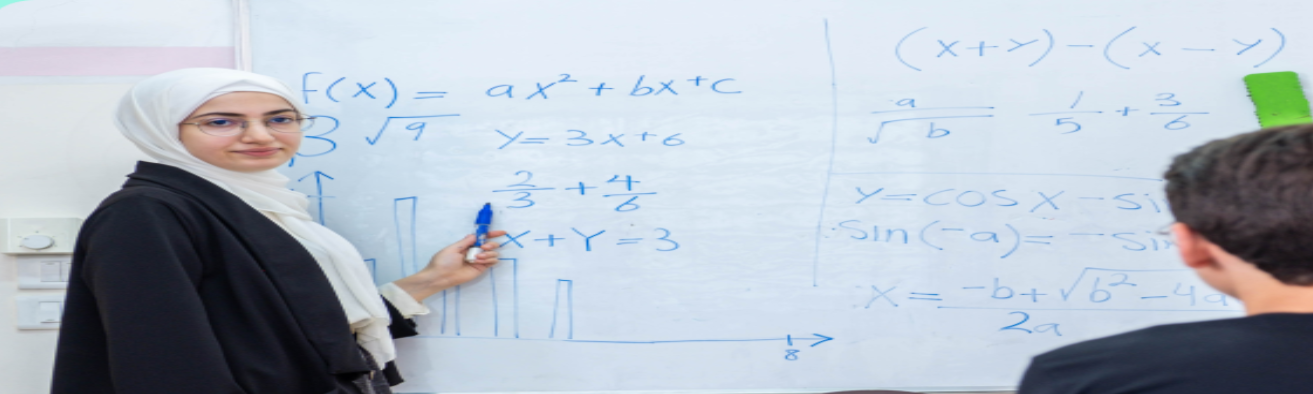 f(x) = ax² + bx + c
3√9
y = 3x + 6
2/3 + 4/6
x + y = 3
8
(x + y) - (x - y)
a/√b
1/5 + 3/6
y = cos x - si
sin(-a) = - si
x = -b + √b² - 4a
2a